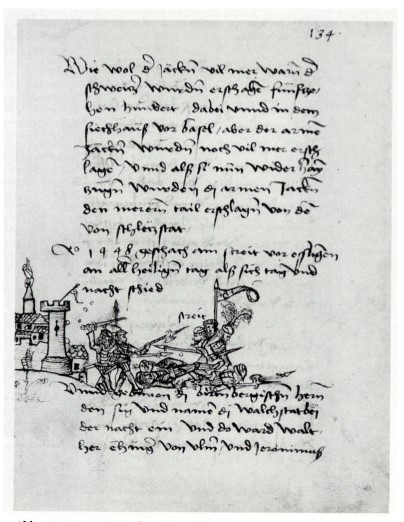 134
Wie wol der Jäckn vil mer warn d
schweitz wurdn erschagn fünffze-
hen hundert, dabei vnnd in dem
siechhauß vor basel, aber der arme
Jäckn wurdn noch vil mer ersch
lagn, vnnd alß si nun wider haÿ
zugn wurden di armen Jackn
den merern tail erschlagn von de
von schletzstat
1448 geschach ain streit vor esslingen
an all heiligen tag alß sich tag vnd
nacht schied
streit
Vnnd gewonen di wirtnbergischn hern
den sig vnd namen di walchstat bei
der nacht ein vnd do ward walt
her ehinger von vlm, vnd Jeronimus